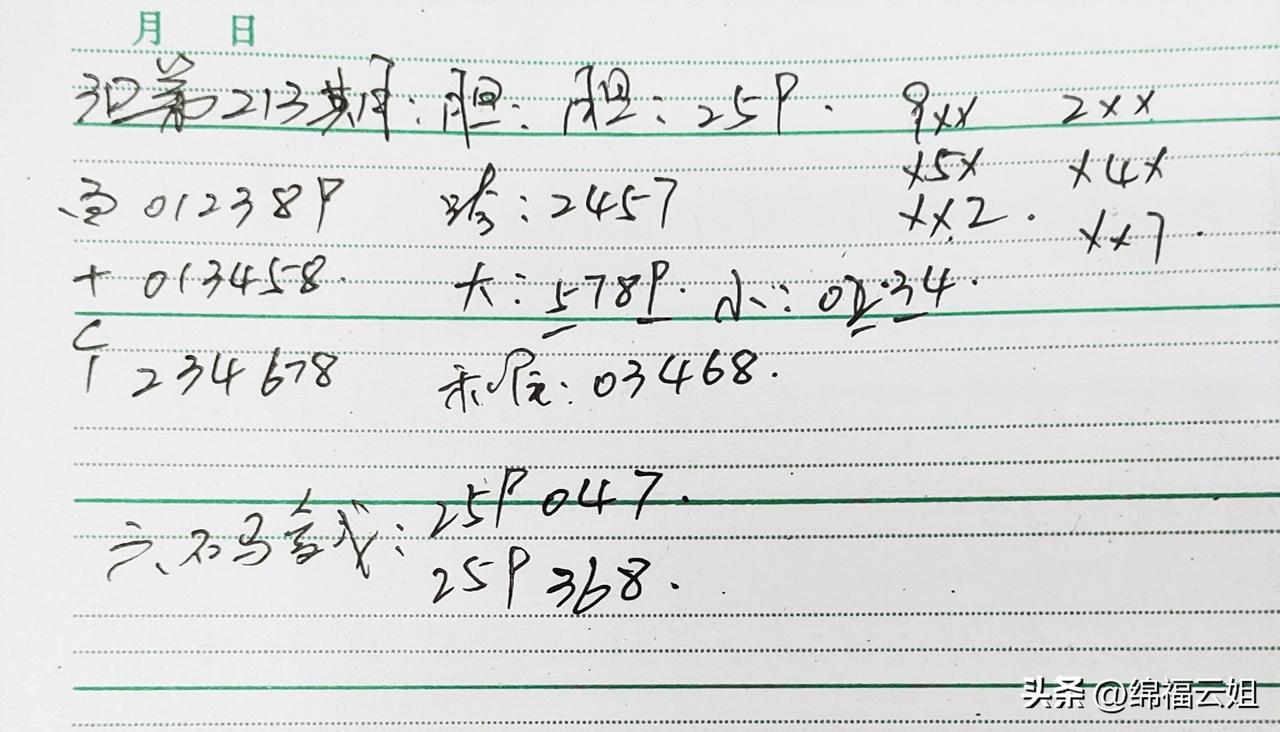 月 日
3D第213期: 胆: 胆: 259. 9xx 2xx
x5x x4x
百 012389 跨: 2457 xx2. xx7.
十 013458. 大: 5789. 小: 0234.
个 234678 和值: 03468.
六码复式: 259047.
259368.
头条 @绵福云姐